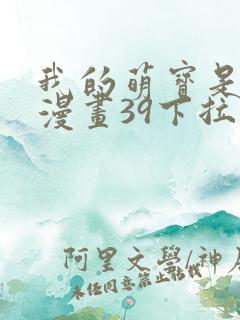 我的萌寶是
漫畫39下拉
阿里文學/神
未經同意禁止轉載